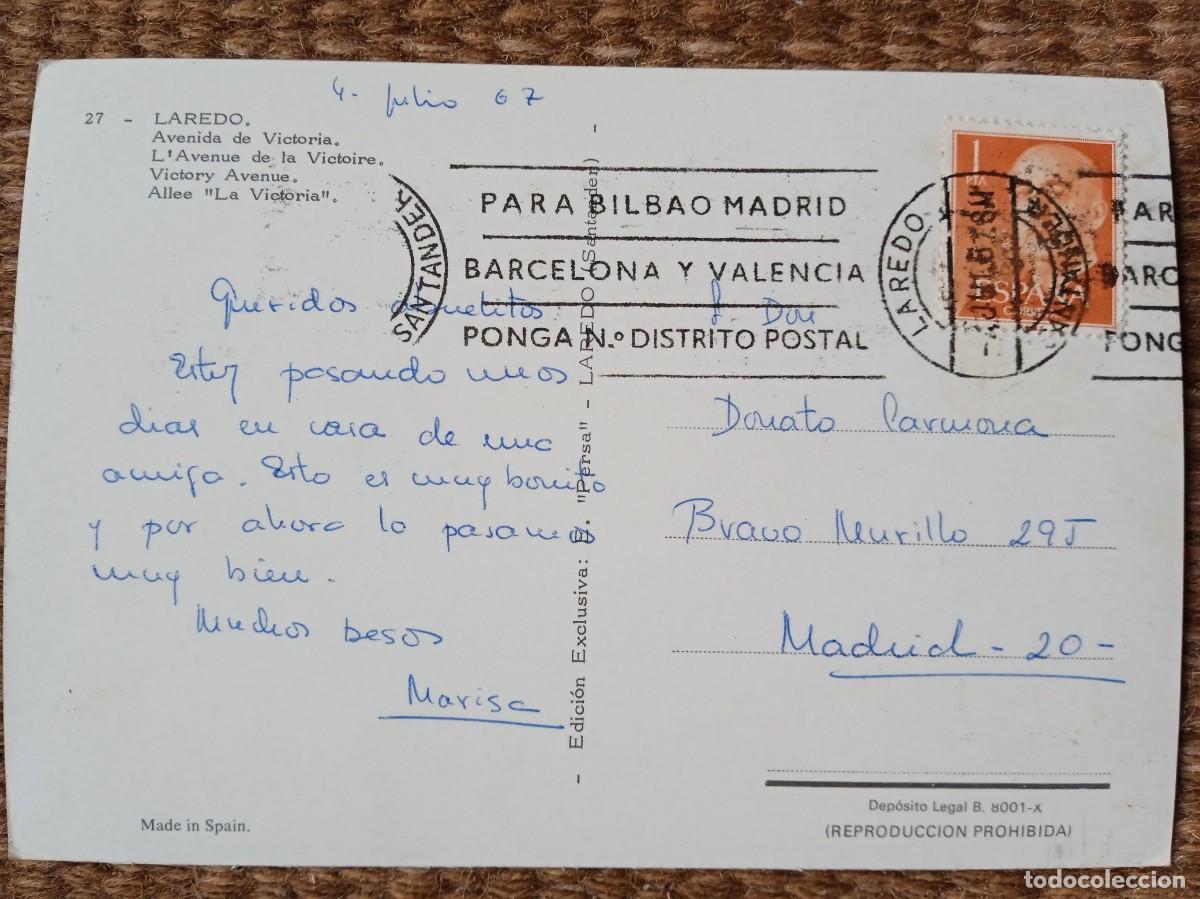 4. julio 67
27 - LAREDO.
Avenida de Victoria.
L'Avenue de la Victoire.
Victory Avenue.
Allee "La Victoria".
Queridos abuelitos
Estoy pasando unos
dias en casa de una
amiga. Esto es muy bonito
y por ahora lo pasamos
muy bien.
Muchos besos
Marisa
Made in Spain.
- Edición Exclusiva: E. "Persa" - LAREDO (Santander) -
SANTANDER
PARA BILBAO MADRID
BARCELONA Y VALENCIA
PONGA N.º DISTRITO POSTAL
LAREDO
SANTANDER
1
ESPAÑA
PAR
BARC
PONG
S. Don
Donato Carmona
Bravo Murillo 295
Madrid - 20 -
Depósito Legal B. 8001-X
(REPRODUCCION PROHIBIDA)
todocoleccion